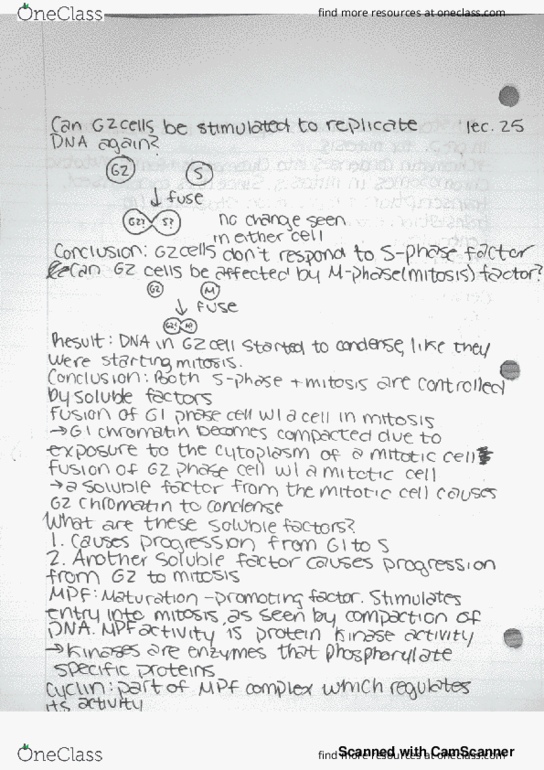 OneClass
find more resources at oneclass.com
Can G2 cells be stimulated to replicate lec. 25
DNA again?
G2 S
↓ fuse
G2? S? no change seen
in either cell
Conclusion: G2 cells don't respond to S-phase factor
Can G2 cells be affected by M-phase (mitosis) factor?
G2 M
↓ fuse
Result: DNA in G2 cell started to condense, like they
were starting mitosis.
Conclusion: Both S-phase + mitosis are controlled
by soluble factors
Fusion of G1 phase cell w/ a cell in mitosis
→ G1 chromatin becomes compacted due to
exposure to the cytoplasm of a mitotic cell
Fusion of G2 phase cell w/ a mitotic cell
→ a soluble factor from the mitotic cell causes
G2 chromatin to condense
What are these soluble factors?
1. Causes progression from G1 to S
2. Another soluble factor causes progression
from G2 to mitosis
MPF: Maturation-promoting factor. Stimulates
entry into mitosis, as seen by compaction of
DNA. MPF activity is protein kinase activity
→ Kinases are enzymes that phosphorylate
specific proteins
Cyclin: part of MPF complex which regulates
its activity
OneClass
find more resources at oneclass.com
Scanned with CamScanner